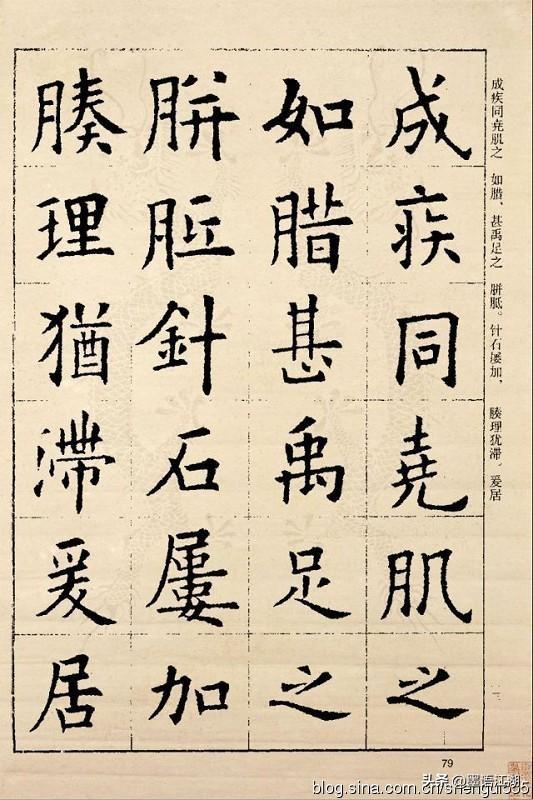 成疾同尧肌之 如腊、甚禹足之 胼胝。针石屡加、 腠理犹滞。爰居
成疾同堯肌之
如腊甚禹足之
胼胝針石屢加
腠理猶滯爰居
79
头条 @墨语江湖
blog.sina.com.cn/shengui555